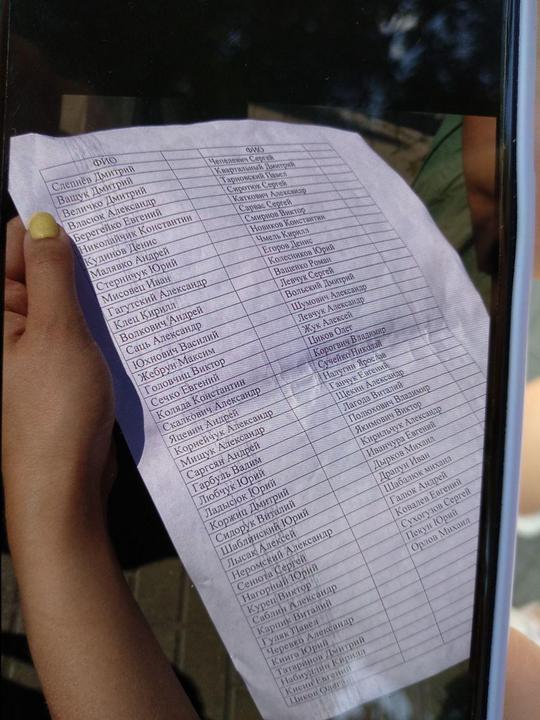 ФИО
Слепнёв Дмитрий
Ващук Дмитрий
Величко Дмитрий
Власюк Александр
Берегейко Евгений
Николайчук Константин
Кудинов Денис
Малявко Андрей
Стернчук Юрий
Мисовец Иван
Гагутский Александр
Клец Кирилл
Волкович Андрей
Саць Александр
Юхнович Василий
Жебрун Максим
Головчиц Виктор
Сечко Евгений
Коляда Константин
Скалкович Александр
Яцевич Андрей
Корнейчук Александр
Мищук Александр
Саргсян Андрей
Гарбуль Вадим
Любчук Юрий
Ладысюк Юрий
Коржиц Дмитрий
Сидорук Виталий
Шаблинский Юрий
Лысак Алексей
Неромский Александр
Сенюта Сергей
Нагорный Юрий
Курец Виктор
Саблин Александр
Карпик Виталий
Гуляк Павел
Черевко Александр
Книга Юрий
Татаринов Дмитрий
Набиуллин Кирилл
Евгений
Цыков
ФИО
Чепелевич Сергей
Квартальный Дмитрий
Тарновский Павел
Сиротюк Сергей
Каткович Александр
Сарвас Сергей
Смирнов Виктор
Новиков Константин
Чмель Кирилл
Егоров Денис
Колесников Юрий
Ващенко Роман
Левчук Сергей
Вольский Дмитрий
Шумович Александр
Левчук Александр
Жук Алексей
Циков Олег
Корогвич Владимир
Сучейко Николай
Налугин Ярослав
Ганчук Евгений
Щекин Александр
Лагода Виталий
Полюхович Владимир
Якимович Виктор
Кирильчук Александр
Иванчура Евгений
Дырков Михаил
Драпун Иван
Шабалюк михаил
Галюк Андрей
Ковалев Евгений
Сухогузов Сергей
Пекун Юрий
Орлов Михаил